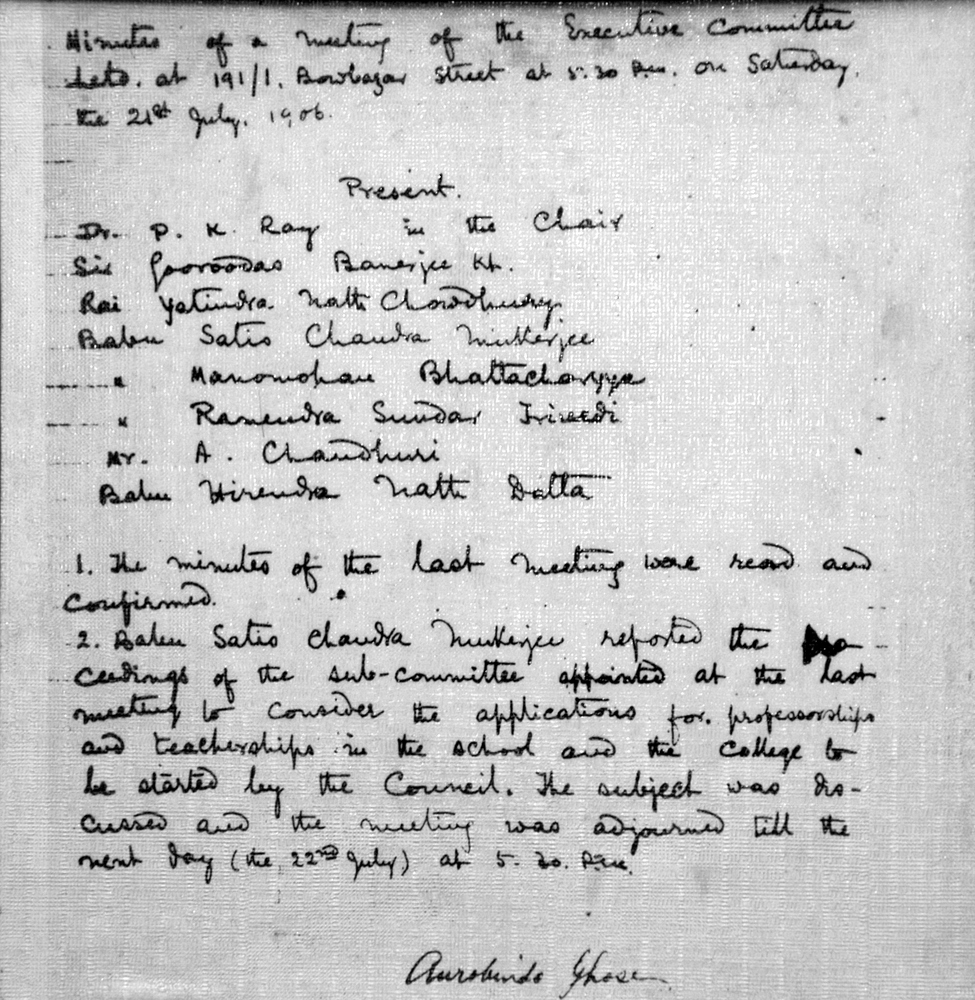 Minutes of a meeting of the Executive Committee
held. at 191/1. Bowbazar Street at 5.30 P.m. on Saturday.
the 21st July. 1906.
Present.
Dr. P. K. Ray in the Chair
Sir Gooroodas Banerjee Kt.
Rai Yatindra Nath Chowdhury
Babu Satis Chandra Mukerjee
" Manomohan Bhattacharyya
" Ramendra Sundar Trivedi
Mr. A. Chaudhuri
Babu Hirendra Nath Datta
1. The minutes of the last meeting were read and
confirmed.
2. Babu Satis Chandra Mukerjee reported the pro-
ceedings of the sub-committee appointed at the last
meeting to consider the applications for. professorships
and teacherships in the school and the college to
be started by the Council. The subject was dis-
cussed and the meeting was adjourned till the
next day (the 22nd July) at 5. 30. P.m.
Aurobindo Ghose